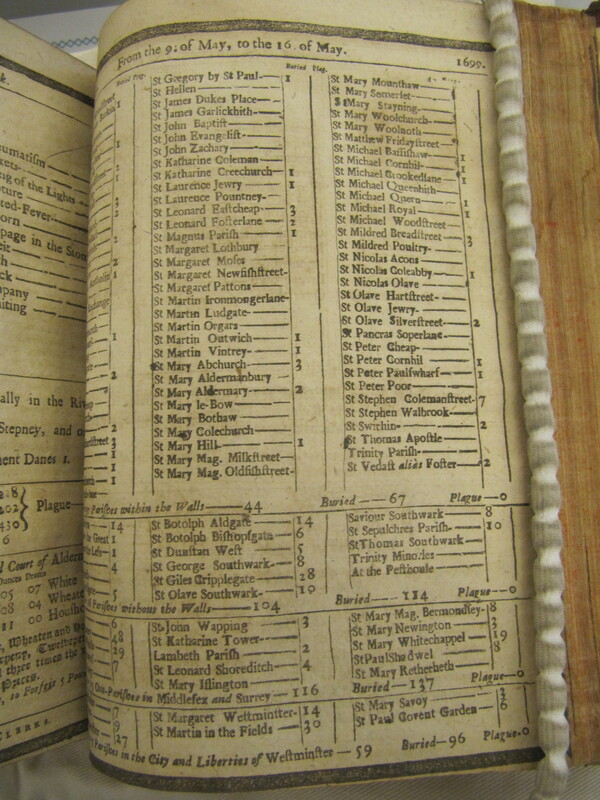 From the 9: of May, to the 16 of May. 1699.
Buried Plag.
St Gregory by St Paul- 1
St Hellen
St James Dukes Place
St James Garlickhith
St John Baptist
St John Evangelist
St John Zachary
St Katharine Coleman
St Katharine Creechurch 1
St Laurence Jewry 1
St Laurence Pountney-
St Leonard Eastcheap 3
St Leonard Fosterlane 2
St Magnus Parish 1
St Margaret Lothbury
St Margaret Moses
St Margaret Newfishstreet-
St Margaret Pattons
St Martin Ironmongerlane-
St Martin Ludgate-
St Martin Orgars
St Martin Outwich 1
St Martin Vintrey- 1
St Mary Abchurch 3
St Mary Aldermanbury
St Mary Aldermary 2
St Mary le-Bow
St Mary Bothaw
St Mary Colechurch
St Mary Hill 1
St Mary Mag. Milkstreet-
St Mary Mag. Oldfishstreet-
St Mary Mounthaw
St Mary Somerset-
St Mary Stayning-
St Mary Woolchurch-
St Mary Woolnoth
St Matthew Fridaystreet
St Michael Bassishaw
St Michael Cornhil 1
St Michael Crookedlane 1
St Michael Queenhith
St Michael Quern 1
St Michael Royal 1
St Michael Woodstreet
St Mildred Breadstreet 3
St Mildred Poultry-
St Nicolas Acons
St Nicolas Coleabby 1
St Nicolas Olave
St Olave Hartstreet-
St Olave Jewry-
St Olave Silverstreet 2
St Pancras Soperlane-
St Peter Cheap-
St Peter Cornhil 1
St Peter Paulswharf 1
St Peter Poor
St Stephen Colemanstreet- 7
St Stephen Walbrook-
St Swithin 2
St Thomas Apostle
Trinity Parish
St Vedast alias Foster 2
Parishes within the Walls 44 Buried 67 Plague 0
St Botolph Aldgate 14
St Botolph Bishopsgate 6
St Dunstan West 5
St George Southwark- 8
St Giles Cripplegate 28
St Olave Southwark- 10
Saviour Southwark 8
St Sepulchres Parish- 10
St Thomas Southwark
Trinity Minories
At the Pesthouse
Parishes without the Walls 104 Buried 114 Plague 0
St John Wapping 3
St Katharine Tower
Lambeth Parish 2
St Leonard Shoreditch 4
St Mary Islington
St Mary Mag. Bermondsey- 8
St Mary Newington 3
St Mary Whitechappel 19
St Paul Shadwel 8
St Mary Retherheth
Out-Parishes in Middlesex and Surrey 116 Buried 137 Plague 0
St Margaret Westminster- 14
St Martin in the Fields 30
St Mary Savoy
St Paul Covent Garden 6
Parishes in the City and Liberties of Westminster 59 Buried 96 Plague-0